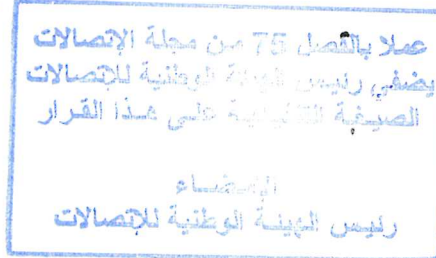 عملا بالفصل 75 من مجلة الإتصالات
يضفي رئيس الهيئة الوطنية للإتصالات
الصيغة التنفيذية على هذا القرار
الإمضاء
رئيس الهيئة الوطنية للإتصالات